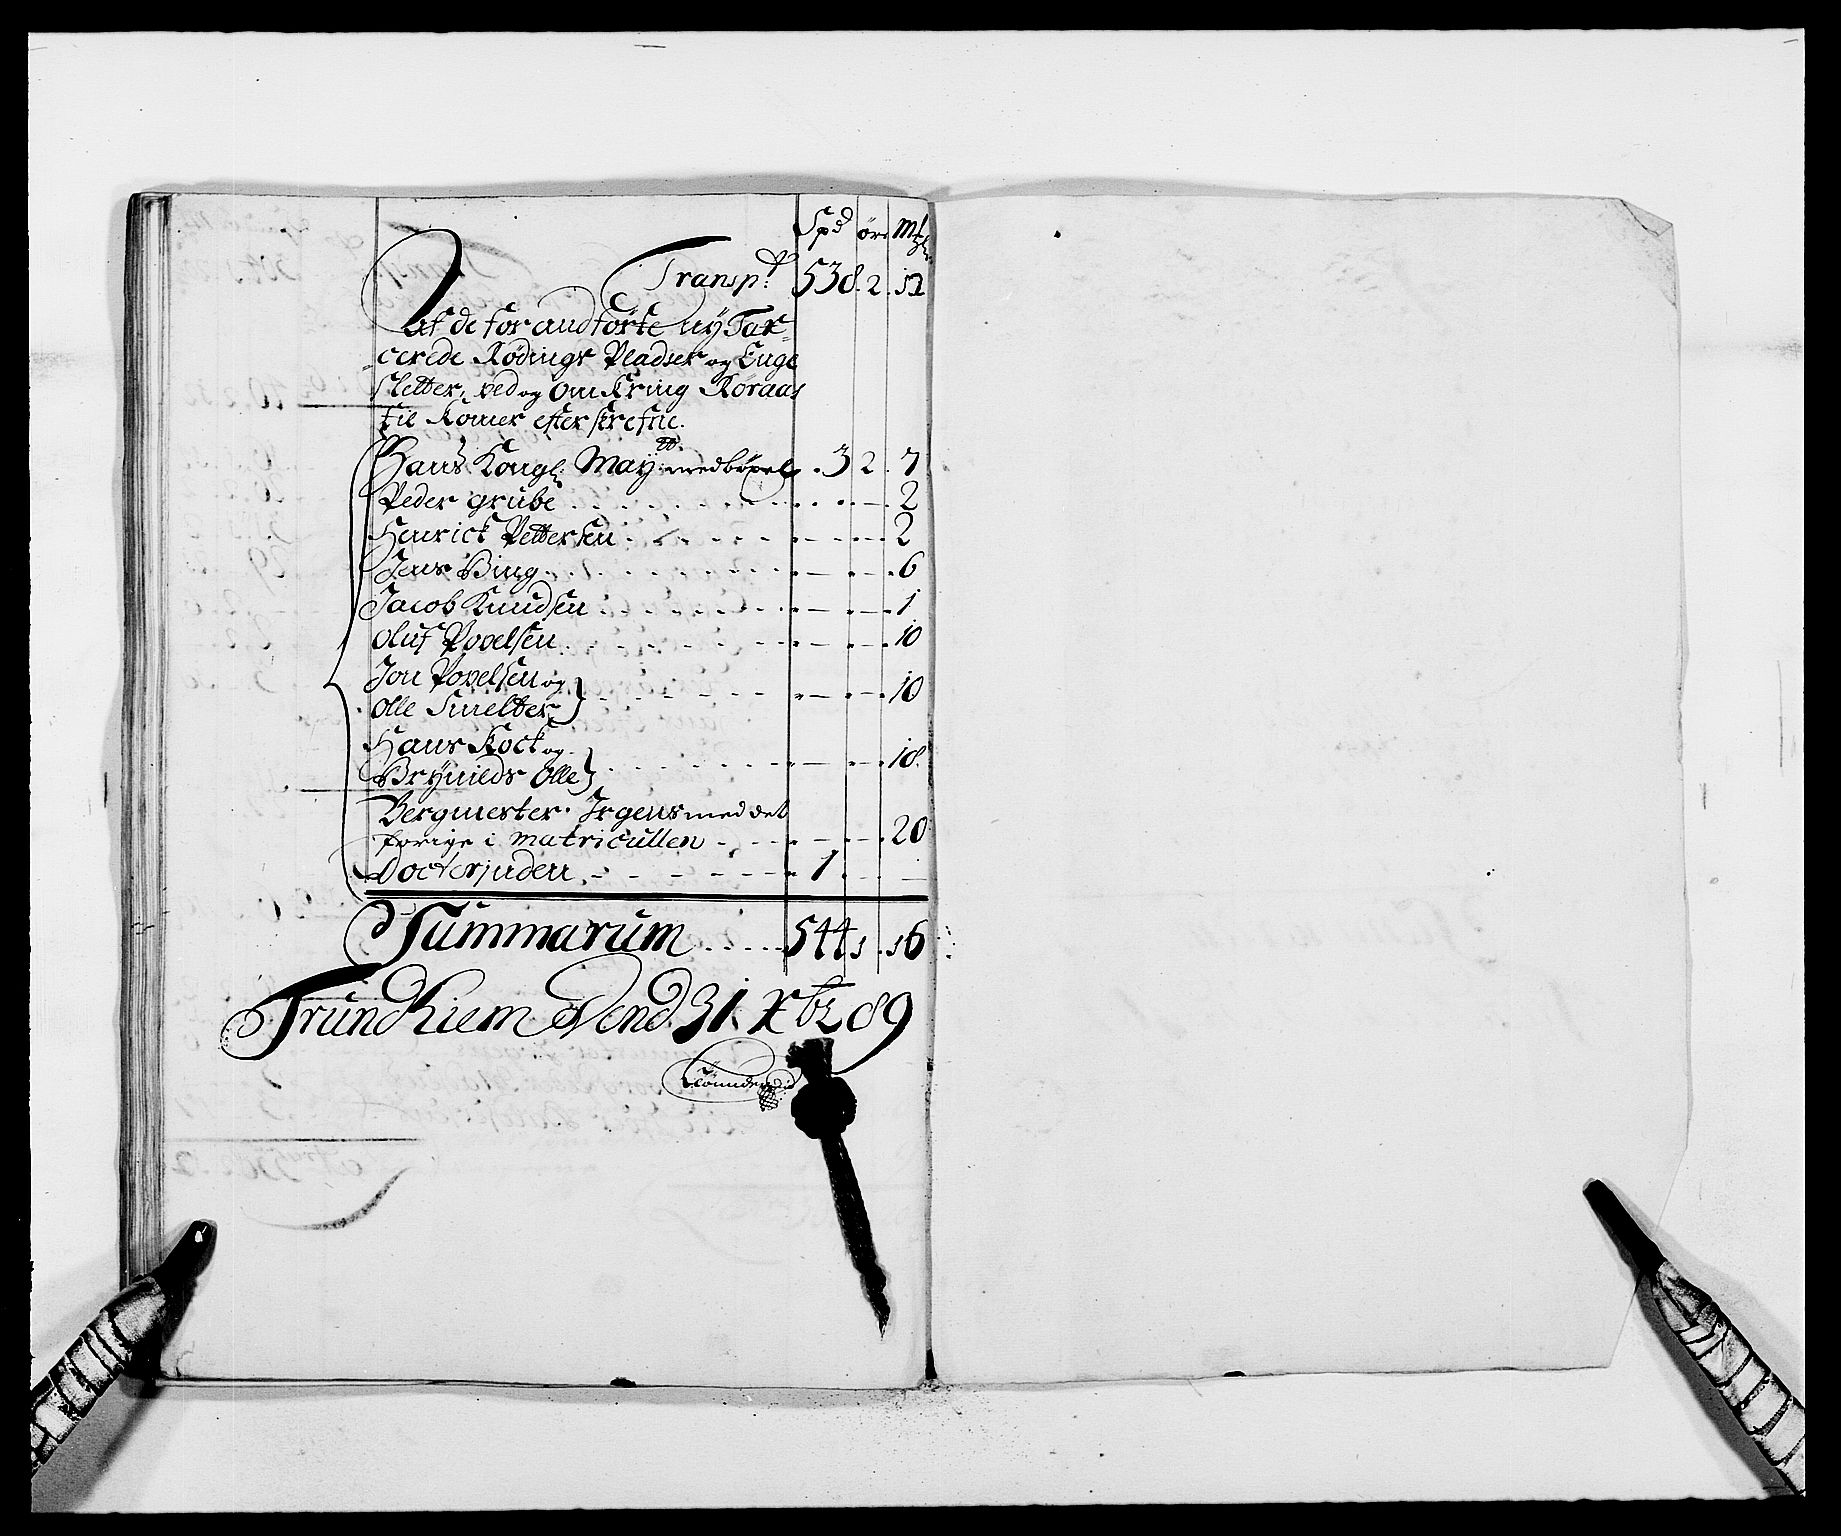 Spd ør mkl
Transpt 538. 2. 12
Af de for andførte ny Tax-
cerede Rødings Pladser og Enge
Sletter, ved og omkring Røraas
til Komer efter skrefne.
Hans Kongl. Maytt. med bøxel . 3 2 . 7
Peder grube - - - 2
Henrick Pettersen - - - 2
Jens Bing - - - 6
Jacob Knudsen - - - 1
Oluf Povelsen - - - 10
Jon Povelsen og
Olle Smelter - - - 10
Hans Kock og
Brynilds Olle - - - 18.
Bergmester Irgens med det
forige i matricullen - - - 20
Docterinden - 1 - -
Summarum 544 1 . 16
Trundhiem Dend 31 Xbr 89